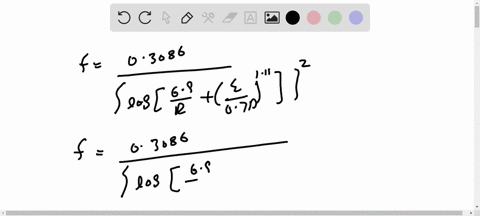 f = 0.3086 / { log [ 6.9/R + (ε/0.7D)^1.11 ] }^2
f = 0.3086 / { log [ 6.9